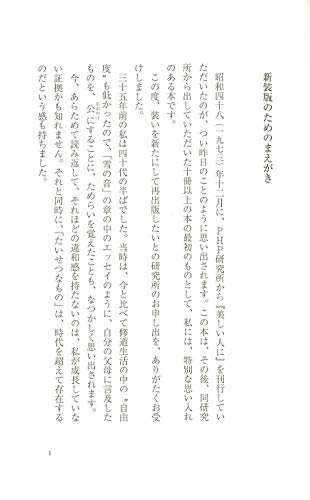 新装版のためのまえがき
昭和四十八(一九七三)年十二月に、PHP研究所から『美しい人に』を刊行してい
ただいたのが、つい昨日のことのように思い出されます。この本は、その後、同研究
所から出していただいた十冊以上の本の最初のものとして、私には、特別な思い入れ
のある本です。
この度、装いを新たにして再出版したいとの研究所のお申し出を、ありがたくお受
けしました。
三十五年前の私は四十代の半ばでした。当時は、今と比べて修道生活の中の〝自由
度〟も低かったので、「雪の音」の章の中のエッセイのように、自分の父母に言及した
ものを、公にすることに、ためらいを覚えたことも、なつかしく思い出されます。
今、あらためて読み返して、それほどの違和感を持たないのは、私が成長していな
い証拠かも知れません。それと同時に、「たいせつなもの」は、時代を超えて存在する
のだという感も持ちました。
1